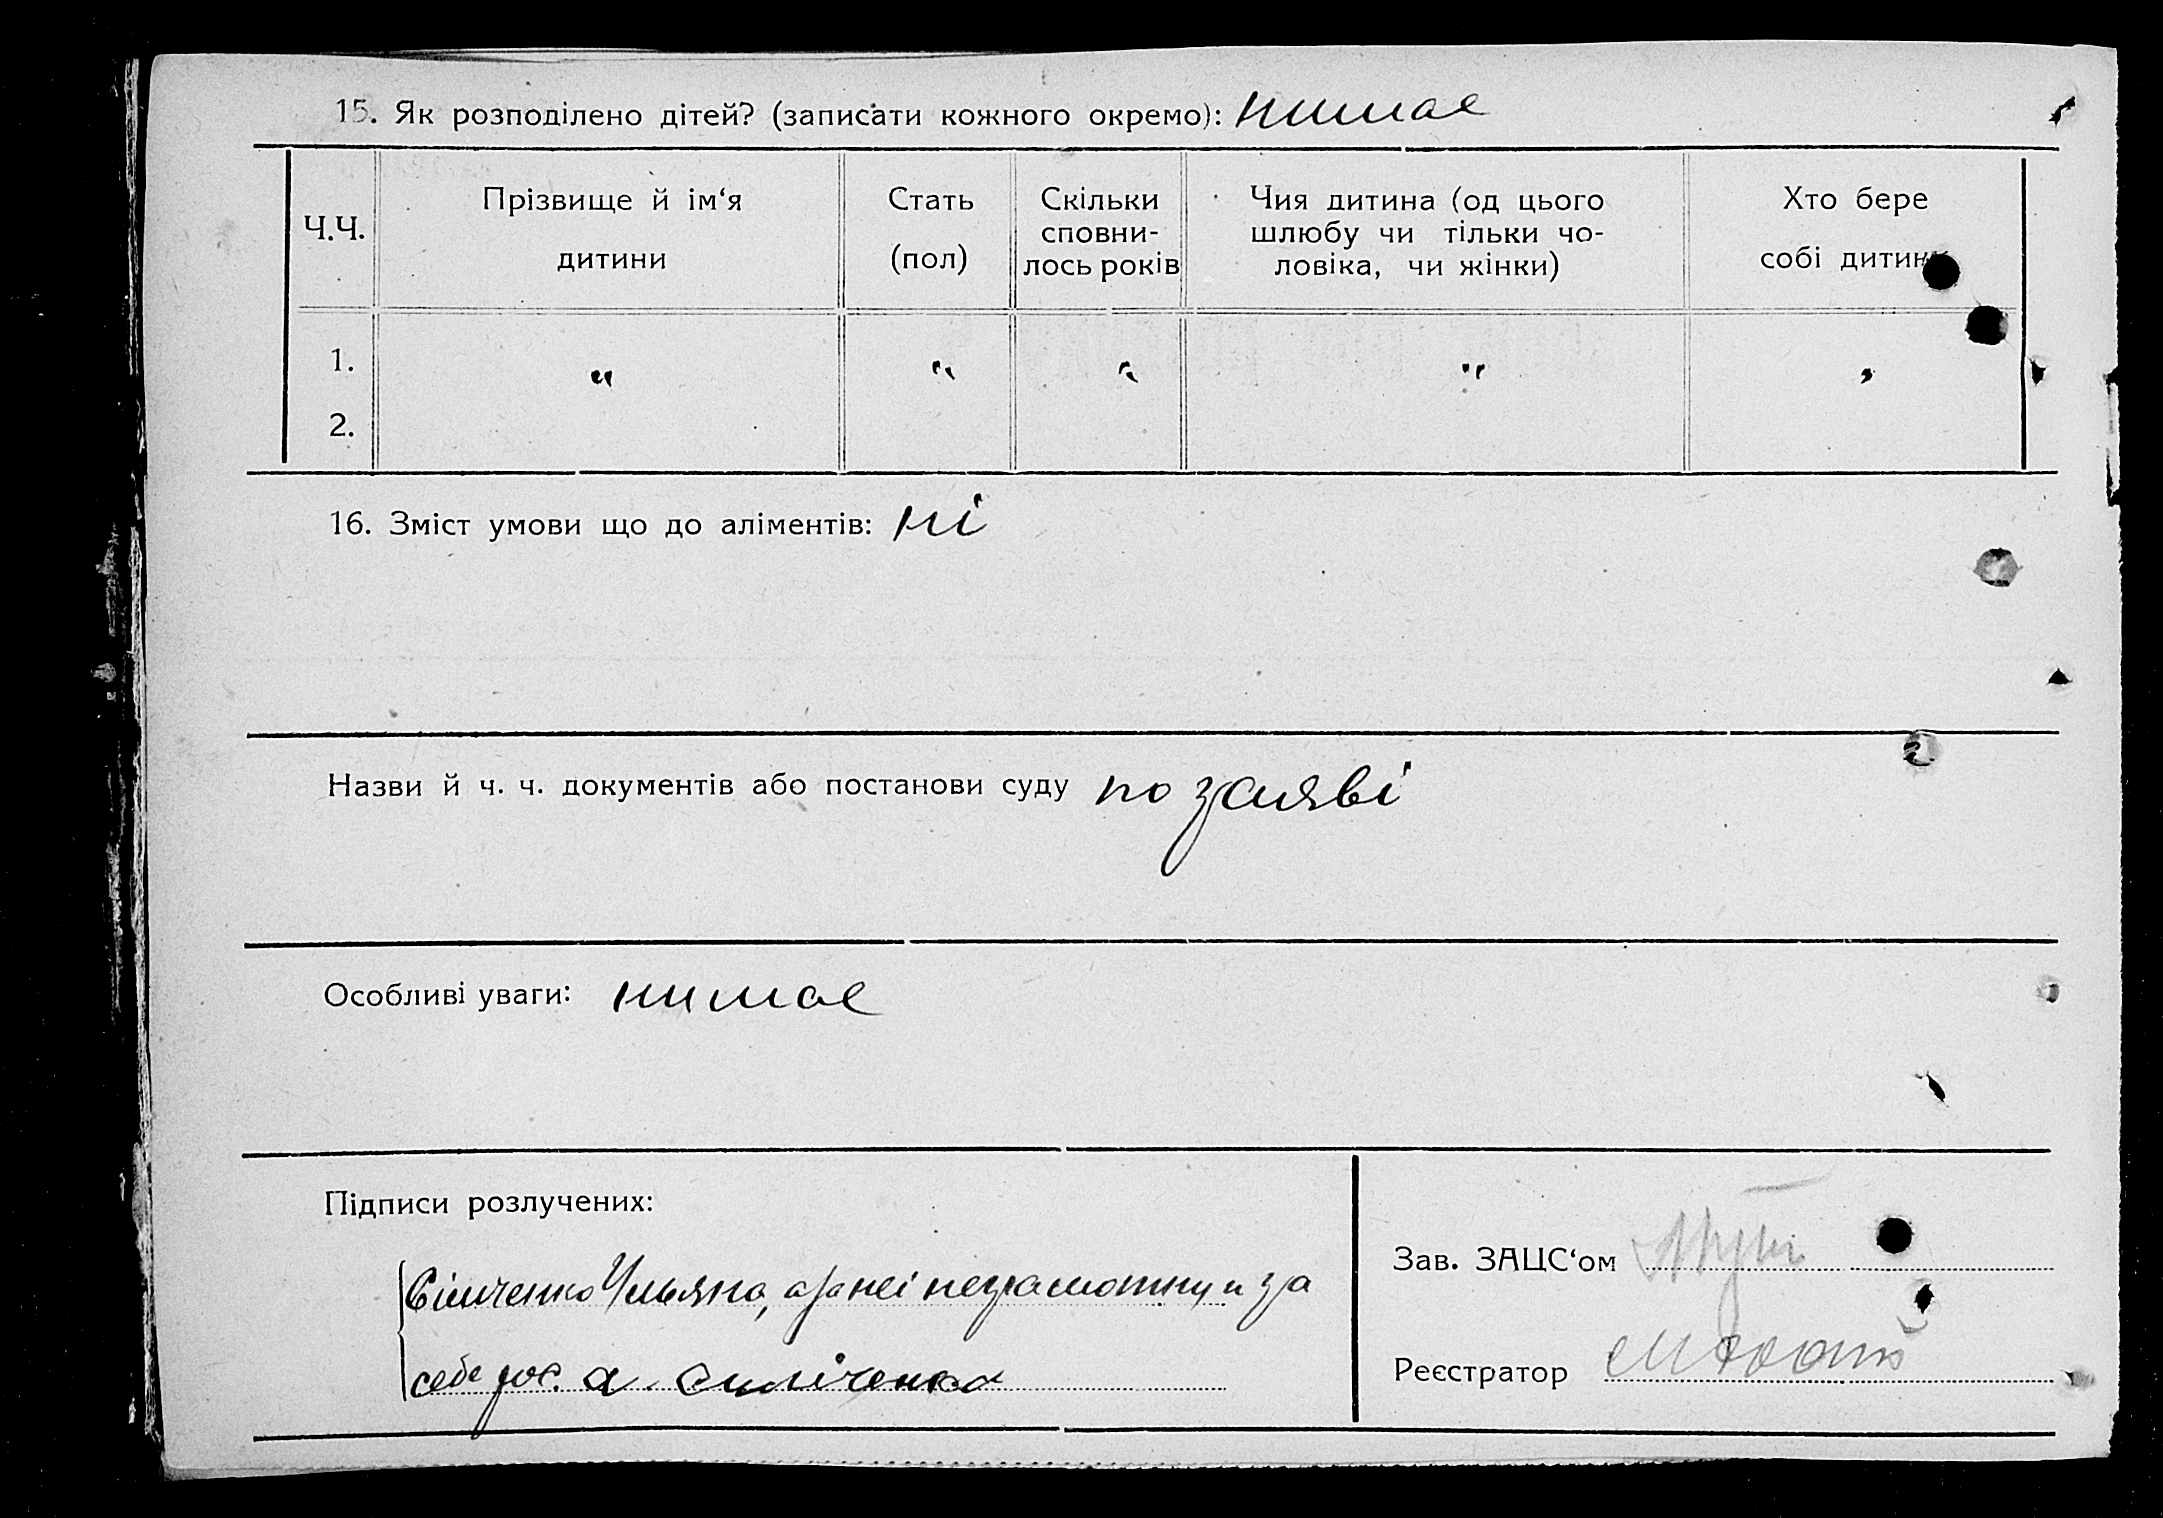 15. Як розподілено дітей? (записати кожного окремо): нимае
Ч.Ч.
Прізвище й ім‘я
дитини
Стать
(пол)
Скільки
сповни-
лось років
Чия дитина (од цього
шлюбу чи тільки чо-
ловіка, чи жінки)
Хто бере
собі дитину
1. „ „ „ „ „
2.
16. Зміст умови що до аліментів: ні
Назви й ч. ч. документів або постанови суду по заяві
Особливі уваги: нимае
Підписи розлучених:
Сімченко Ульяна, а за неі неграмотну и за
себе рос. а. сімченко
Зав. ЗАЦС‘ом
Реєстратор